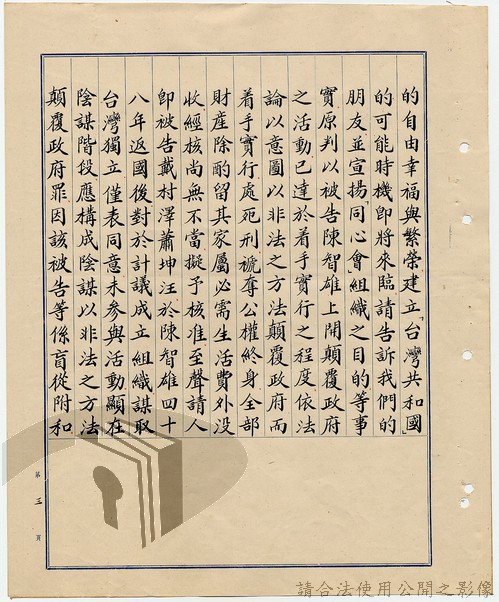 的自由幸福與繁榮建立「台灣共和國」
的可能時機即將來臨請告訴我們的
朋友並宣揚「同心會」組織之目的等事
實原判以被告陳智雄上開顛覆政府
之活動已達於着手實行之程度依法
論以意圖以非法之方法顛覆政府而
着手實行處死刑褫奪公權終身全部
財產除酌留其家屬必需生活費外沒
收經核尚無不當擬予核准至聲請人
即被告戴村澤蕭坤汪於陳智雄四十
八年返國後對於計議成立組織謀取
台灣獨立僅表同意未參與活動顯在
陰謀階段應構成陰謀以非法之方法
顛覆政府罪因該被告等係盲從附和
第三頁
請合法使用公開之影像